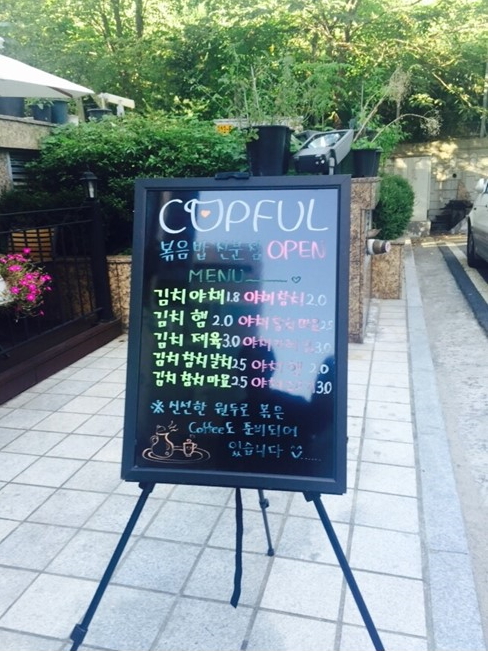 CUPFUL
볶음밥 전문점 OPEN
MENU
김치야채 1.8 야채참치 2.0
김치 햄 2.0 야채참치마요 2.5
김치 제육 3.0 야채 3.0
김치참치날치 2.5 야채 햄 2.0
김치참치마요 2.5 야채 3.0
※ 신선한 원두로 볶은
Coffee도 준비되어
있습니다